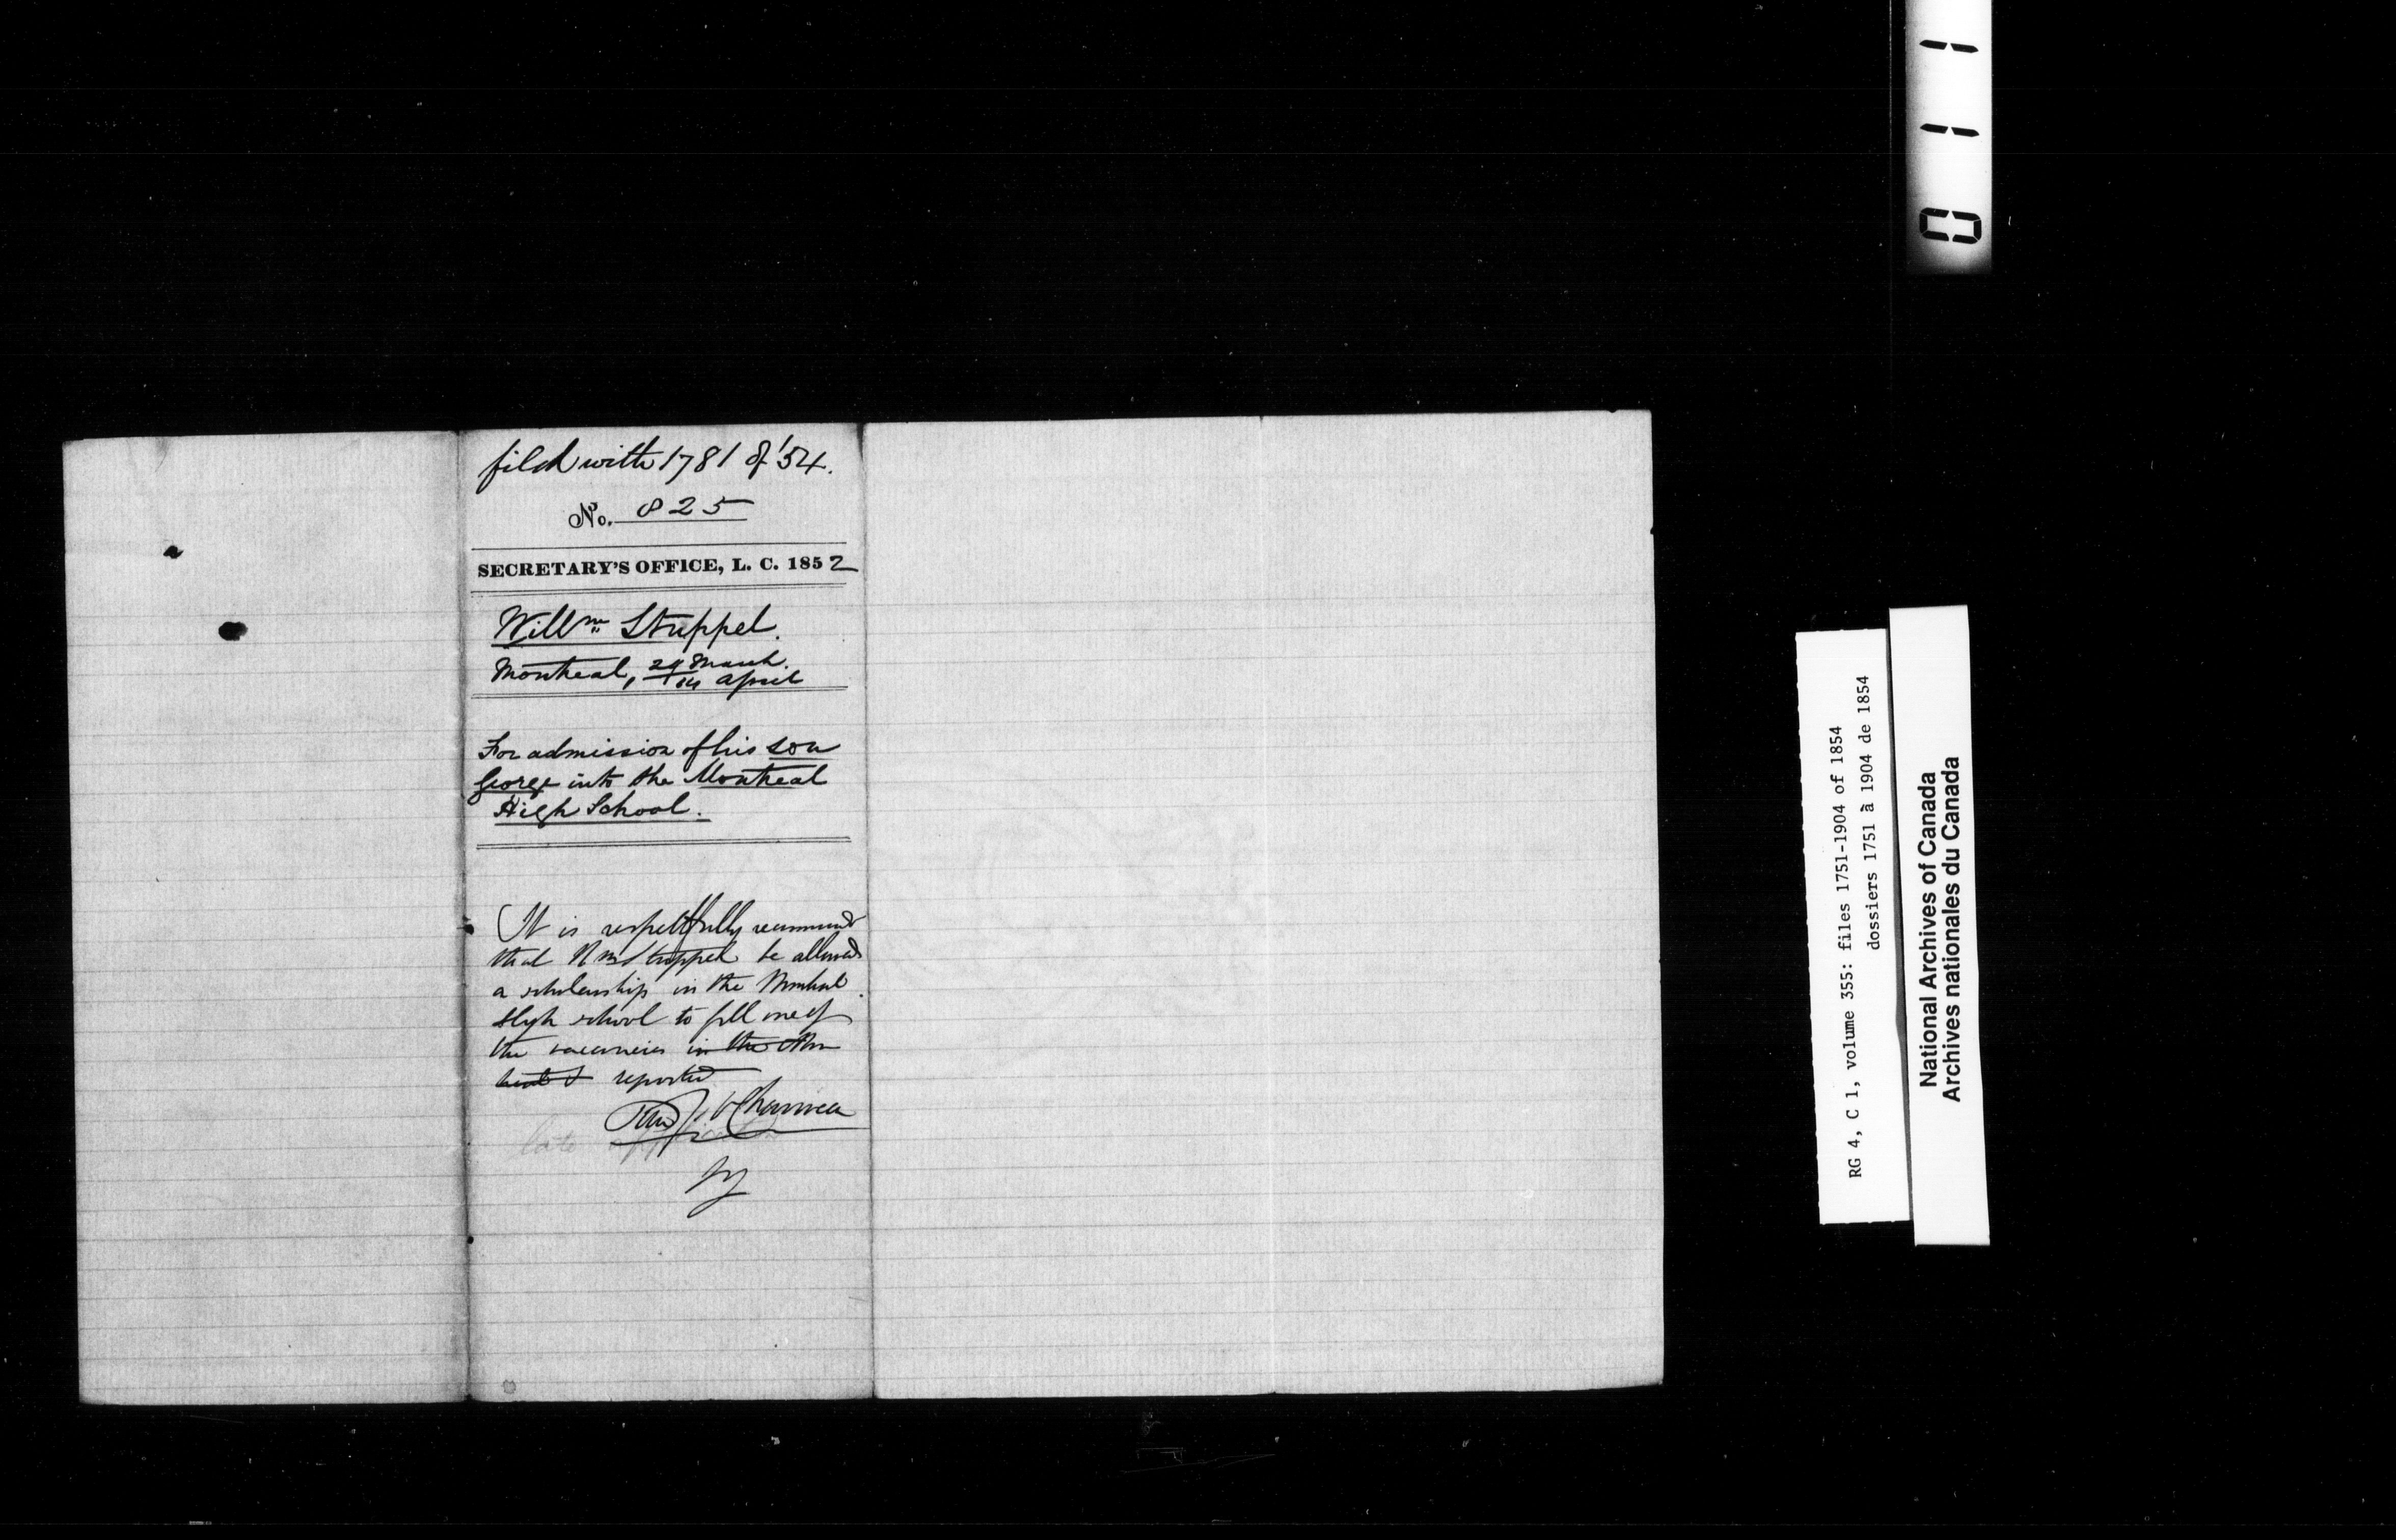 filed with 1781 of '54.
No. 825
SECRETARY'S OFFICE, L. C. 1852
Willm Struppel.
Montreal, 24 March.
14 April
For admission of his son
George into the Montreal
High School.
It is respectfully recommend
that Wm Struppel be allowed
a scholarship in the Montreal
High school to fill one of
the vacancies in the Mon
treal reported
late
RG 4, C 1, volume 355: files 1751-1904 of 1854
dossiers 1751 à 1904 de 1854
National Archives of Canada
Archives nationales du Canada
011